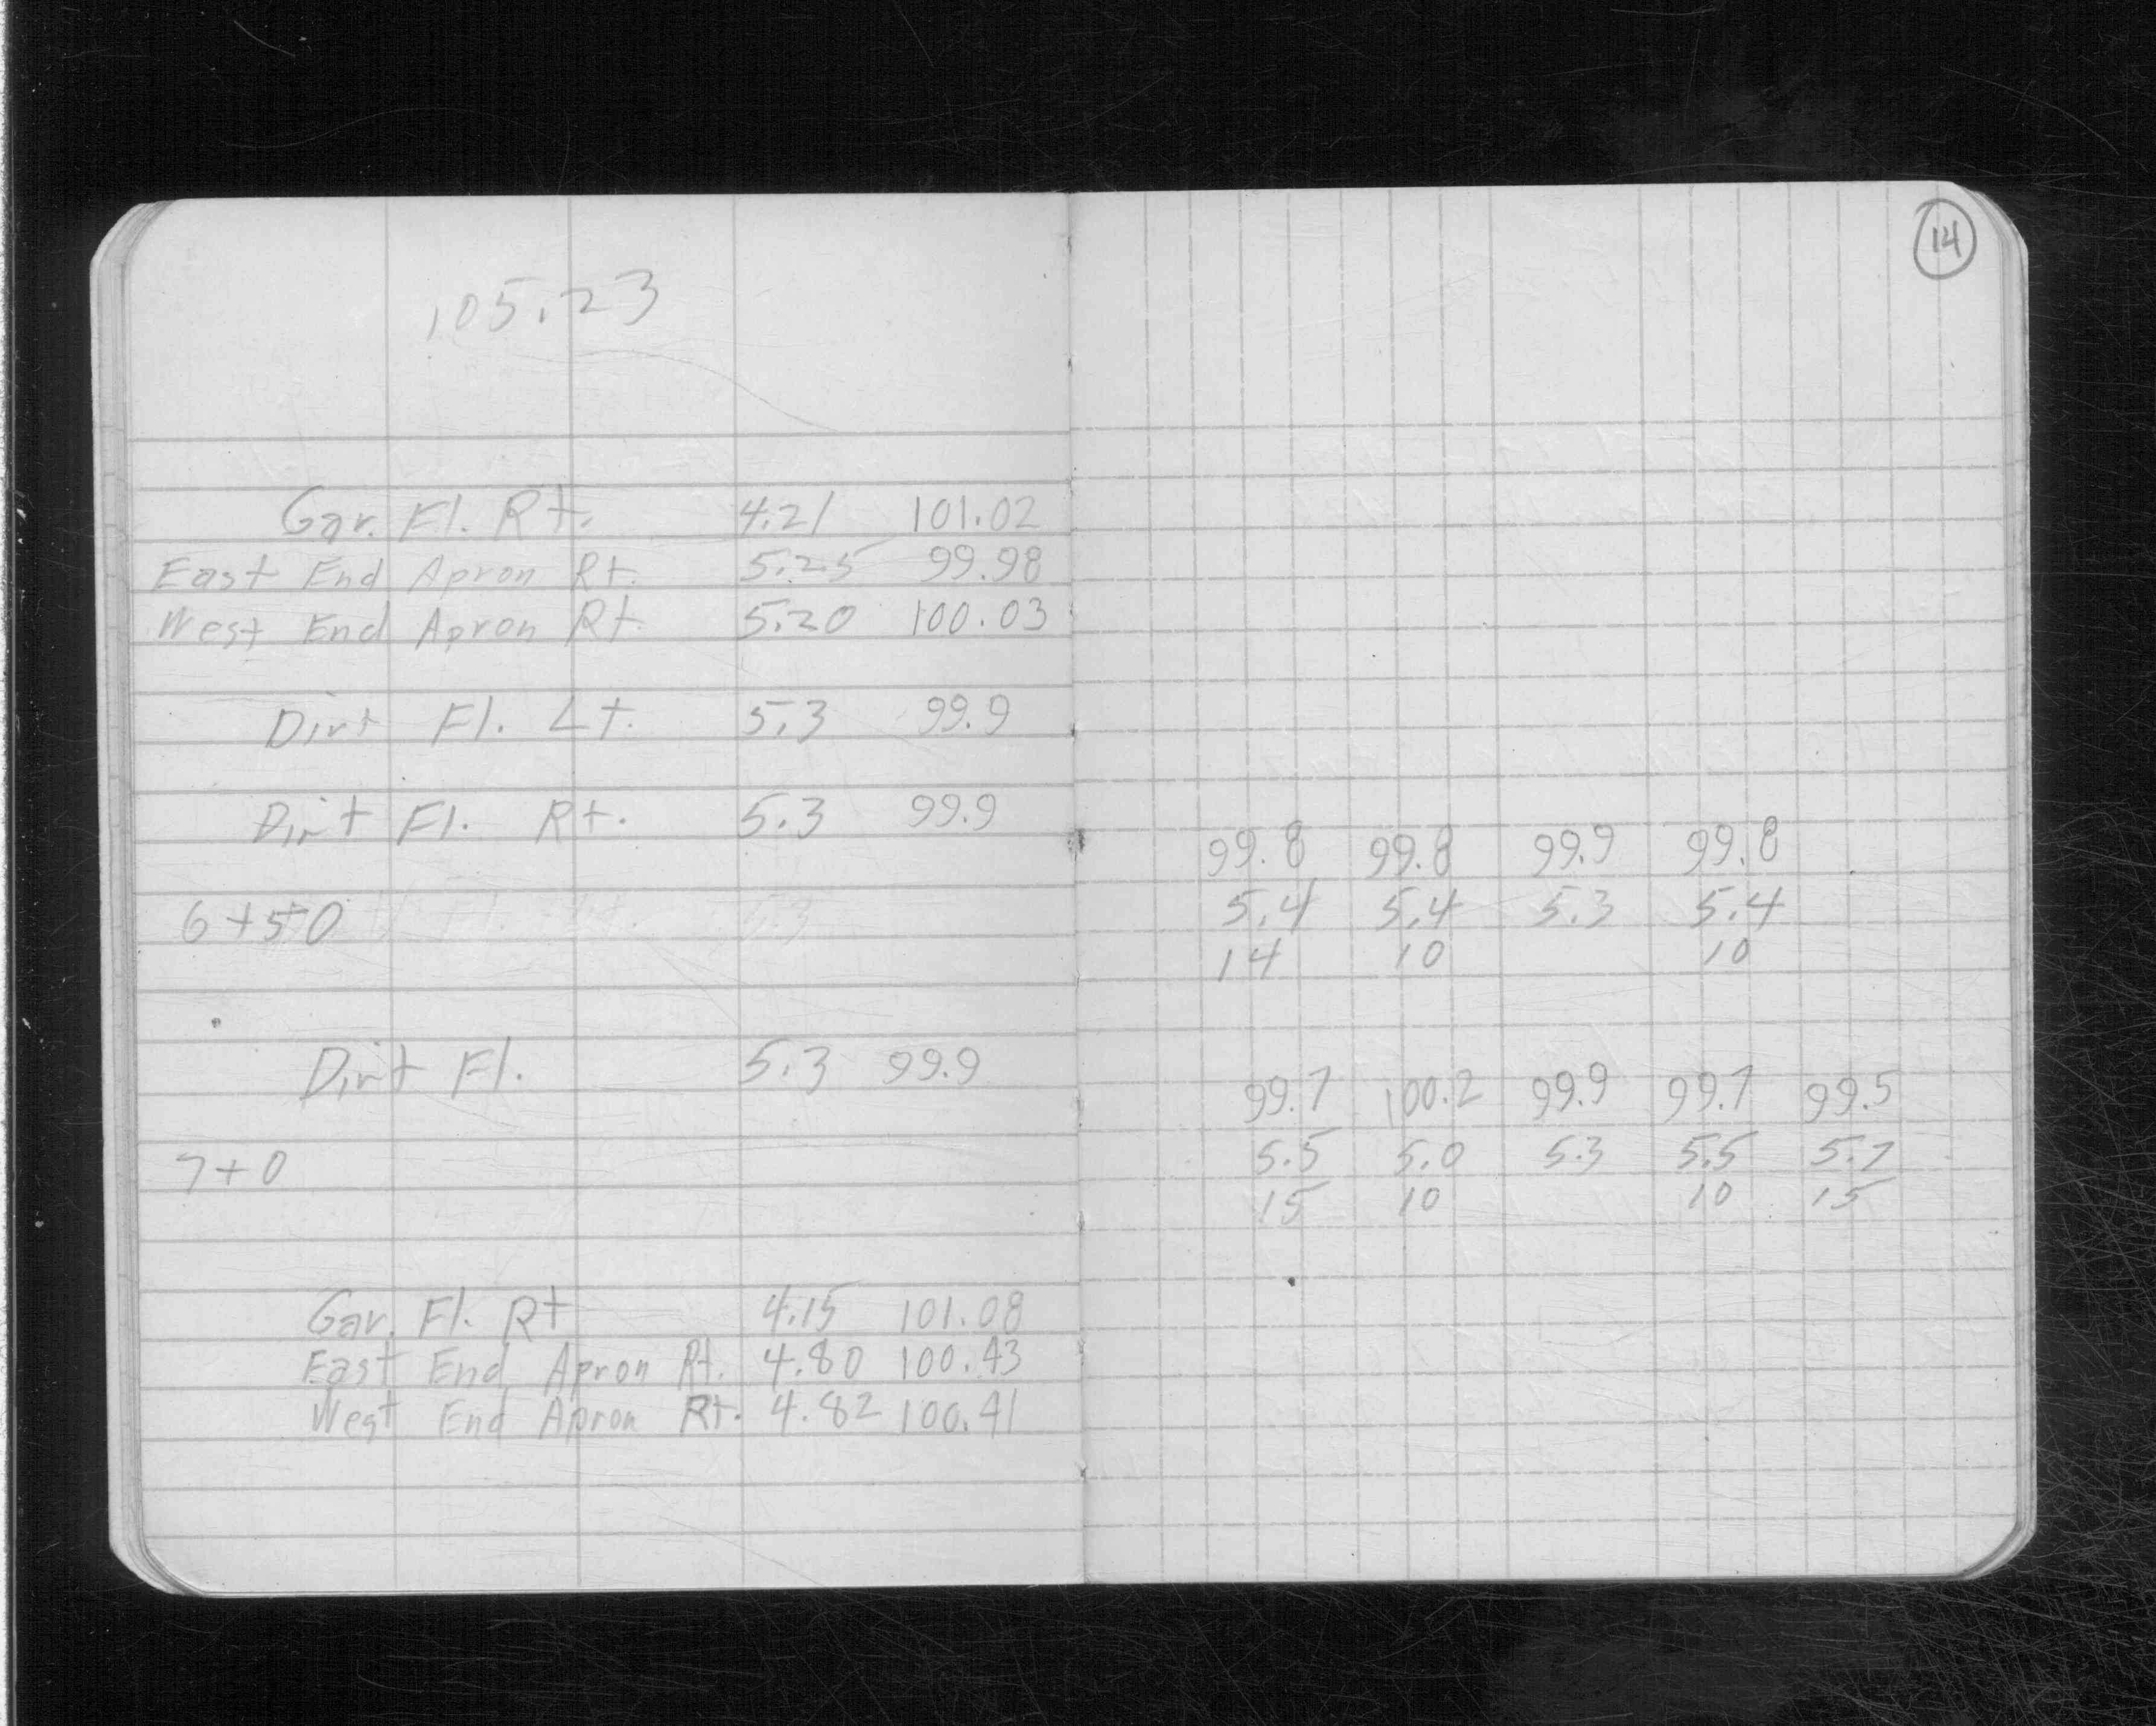 105.23
Gar. Fl. Rt. 4.21 101.02
East End Apron Rt. 5.25 99.98
West End Apron Rt. 5.20 100.03
Dirt Fl. Lt. 5.3 99.9
Dirt Fl. Rt. 5.3 99.9
6+50
Dirt Fl. 5.3 99.9
7+0
Gar. Fl. Rt 4.15 101.08
East End Apron Rt. 4.80 100.43
West End Apron Rt. 4.82 100.41
14
99.8 99.8 99.9 99.8
5.4 5.4 5.3 5.4
14 10 10
99.7 100.2 99.9 99.7 99.5
5.5 5.0 5.3 5.5 5.7
15 10 10 15